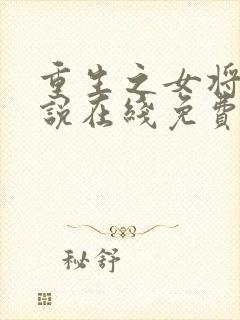 重生之女将
说在线免费
秘舒